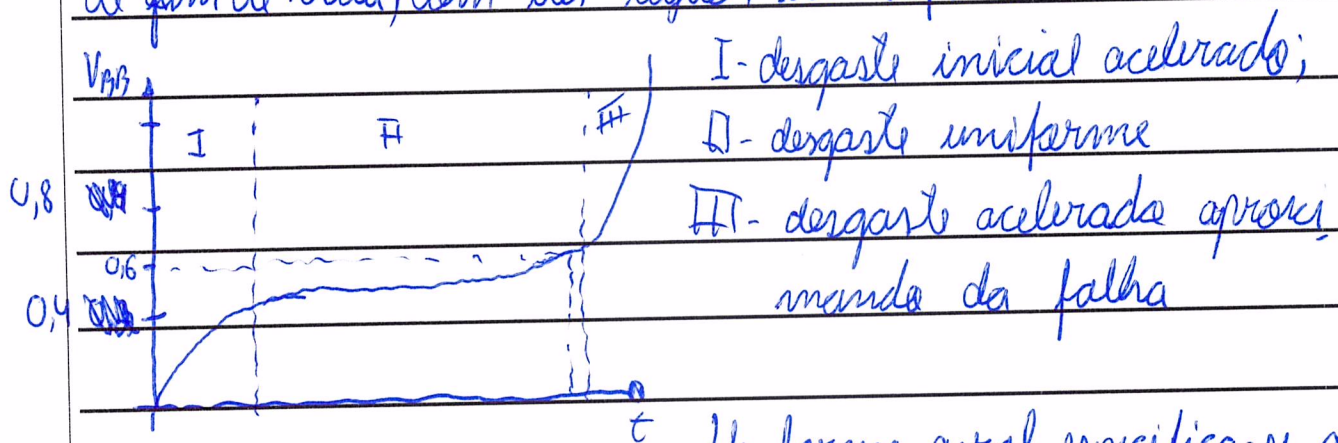 V_BB
I
II
III
0,8
0,6
0,4
t
I - desgaste inicial acelerado;
II - desgaste uniforme
III - desgaste acelerado aproxi
mando da falha